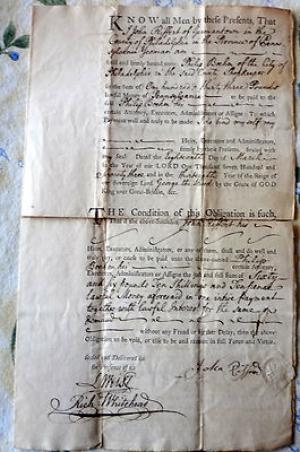 KNOW all Men by these Presents, That
I John Riffert of Germantown in the
County of Philadelphia in the Province of Penn
sylvania Yeoman am
held and firmly bound unto Philip Boehm of the City of
Philadelphia in the said County Shopkeeper
In the Sum of One hundred & thirty three Pounds
lawful Money of Pennsylvania to be paid to the
said Philip Boehm his
certain Attorney, Executors, Administrators or Assigns: To which
Payment well and truly to be made I do bind myself my
Heirs, Executors and Administrators,
firmly by these Presents. Sealed with
my Seal. Dated the Eighteenth Day of March
in the Year of our LORD One Thousand Seven Hundred and
Seventy three and in the thirteenth Year of the Reign of
our Sovereign Lord George the third by the Grace of GOD
King over Great-Britain, &c.
THE Condition of this Obligation is such,
That if the above-bounden John Riffert his
Heirs, Executors, Administrators, or any of them, shall do and well and
truly pay, or cause to be paid unto the above-named Philip
Boehm his certain Attorney,
Executors, Administrators or Assigns the just and full Sum of Sixty
Pounds Ten Shillings and
lawful Money aforesaid in one entire payment
together with lawful Interest for the same on
Demand
without any Fraud or further Delay, then the above
Obligation to be void, or else to be and remain in full Force and Virtue.
Sealed and Delivered in
the Presence of us
John Riffert
L Weiss
Rich Whitehead